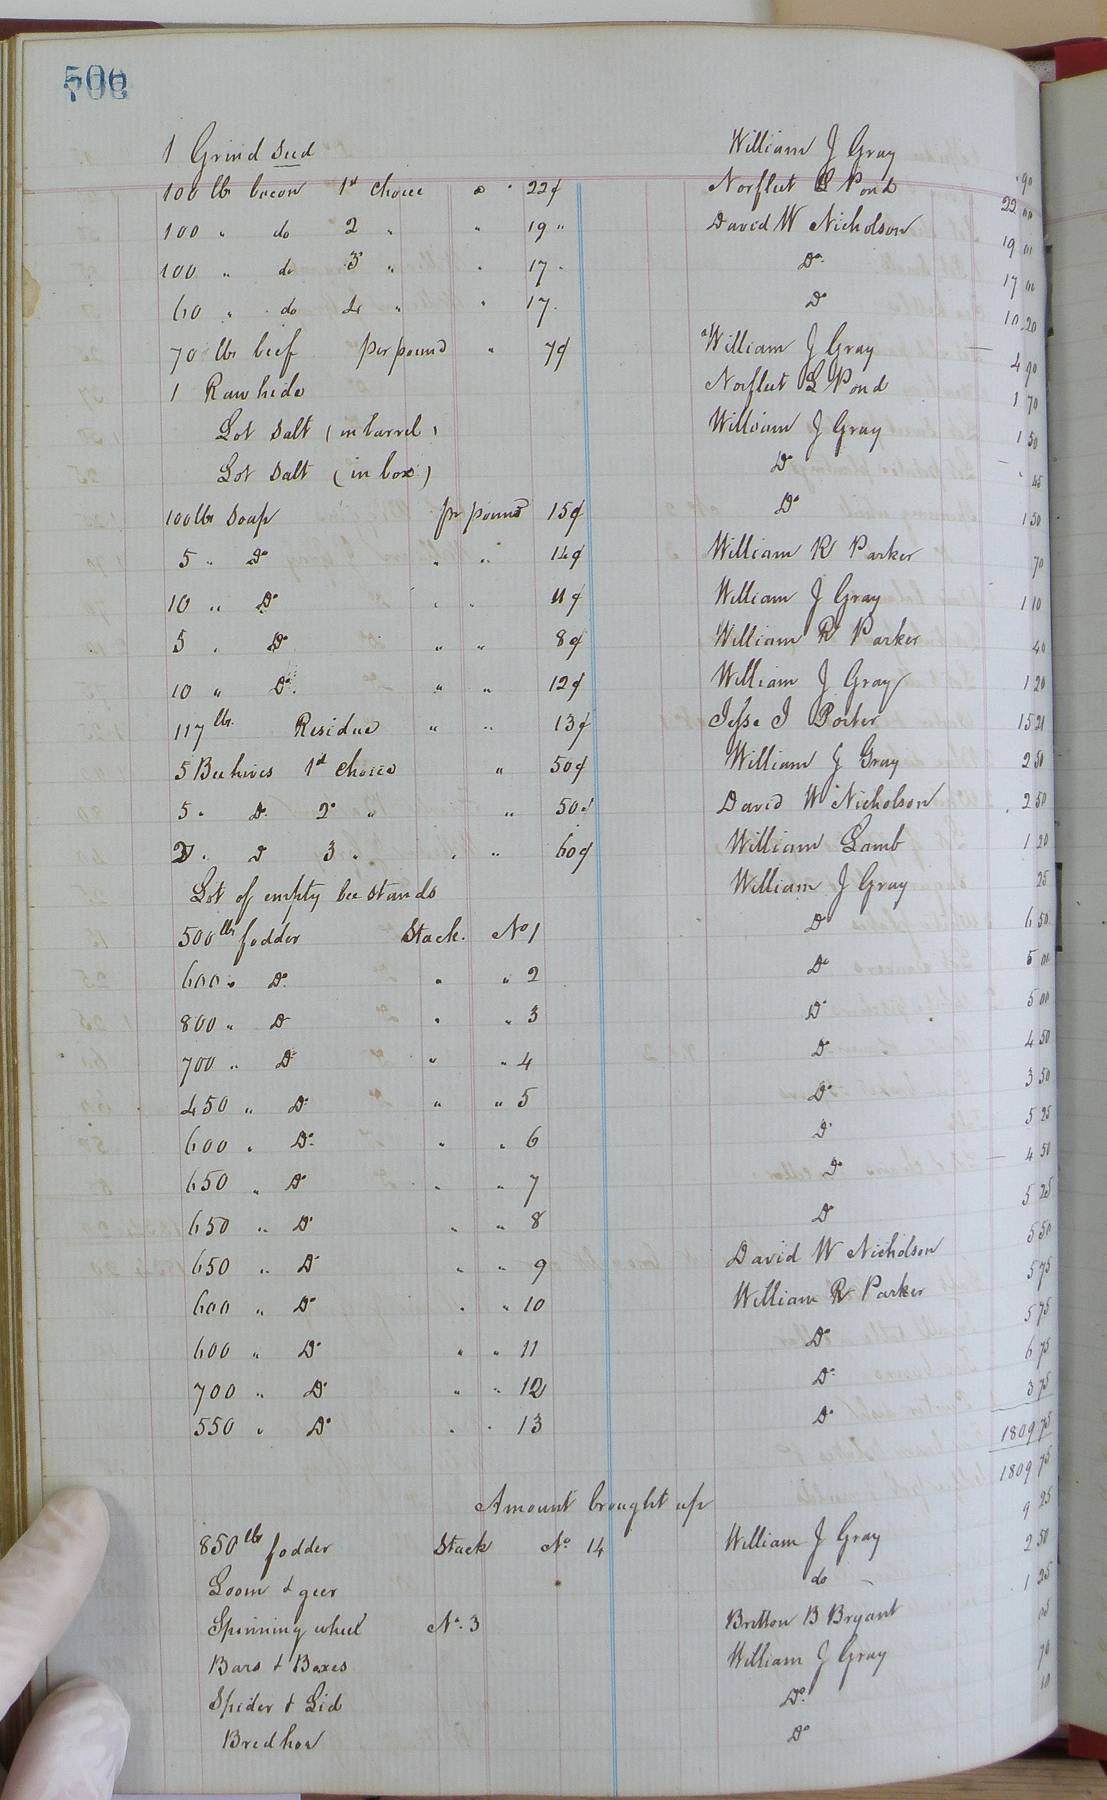 1 Grind Seed William J Gray 90
100 lb bacon 1st Choice " " 22¢ Norfleet L Pond 22 00
100 " do 2 " " 19 " David W Nicholson 19 00
100 " do 3 " " 17 " Do 17 00
60 " do 4 " " 17 " Do 10 20
70 lbs beef per pound " 7¢ William J Gray 4 90
1 Raw hide Norfleet L Pond 1 70
Lot Salt (in barrel) William J Gray 1 50
Lot Salt (in box) Do
100 lbs Soap pr pound 15¢ Do 1 50
5 " Do " " 14¢ William R Parker 70
10 " Do " " 11¢ William J Gray 1 10
5 " Do " " 8¢ William R Parker 40
10 " Do " " 12¢ William J Gray 1 20
117 lbs. Residue " " 13¢ Jesse J Porter 15 21
5 Bee hives 1st Choice " 50¢ William J Gray 2 50
5 " Do 2d " " 50¢ David W Nicholson 2 50
2 " D 3 " " " 60¢ William Lamb 1 20
Lot of empty bee stands William J Gray 25
500 lbs fodder Stack. No 1 Do 6 50
600 " Do " " 2 Do 5 00
800 " Do " " 3 Do 5 00
700 " Do " " 4 Do 4 50
450 " Do " " 5 Do 3 50
600 " Do " " 6 Do 5 25
650 " Do " " 7 Do 4 50
650 " Do " " 8 Do 5 25
650 " Do " " 9 David W Nicholson 5 50
600 " Do " " 10 William R Parker 5 75
600 " Do " " 11 Do 5 75
700 " Do " " 12 Do 6 75
550 " Do " " 13 Do 3 75
1809 75
Amount brought up 1809 75
850 lbs fodder Stack No. 14 William J Gray 9 25
Loom & geer do 2 50
Spinning wheel No. 3 Britton B Bryant 1 25
Bars & Boxes William J Gray 05
Spider & Lid Do 70
Bredhoe Do 10